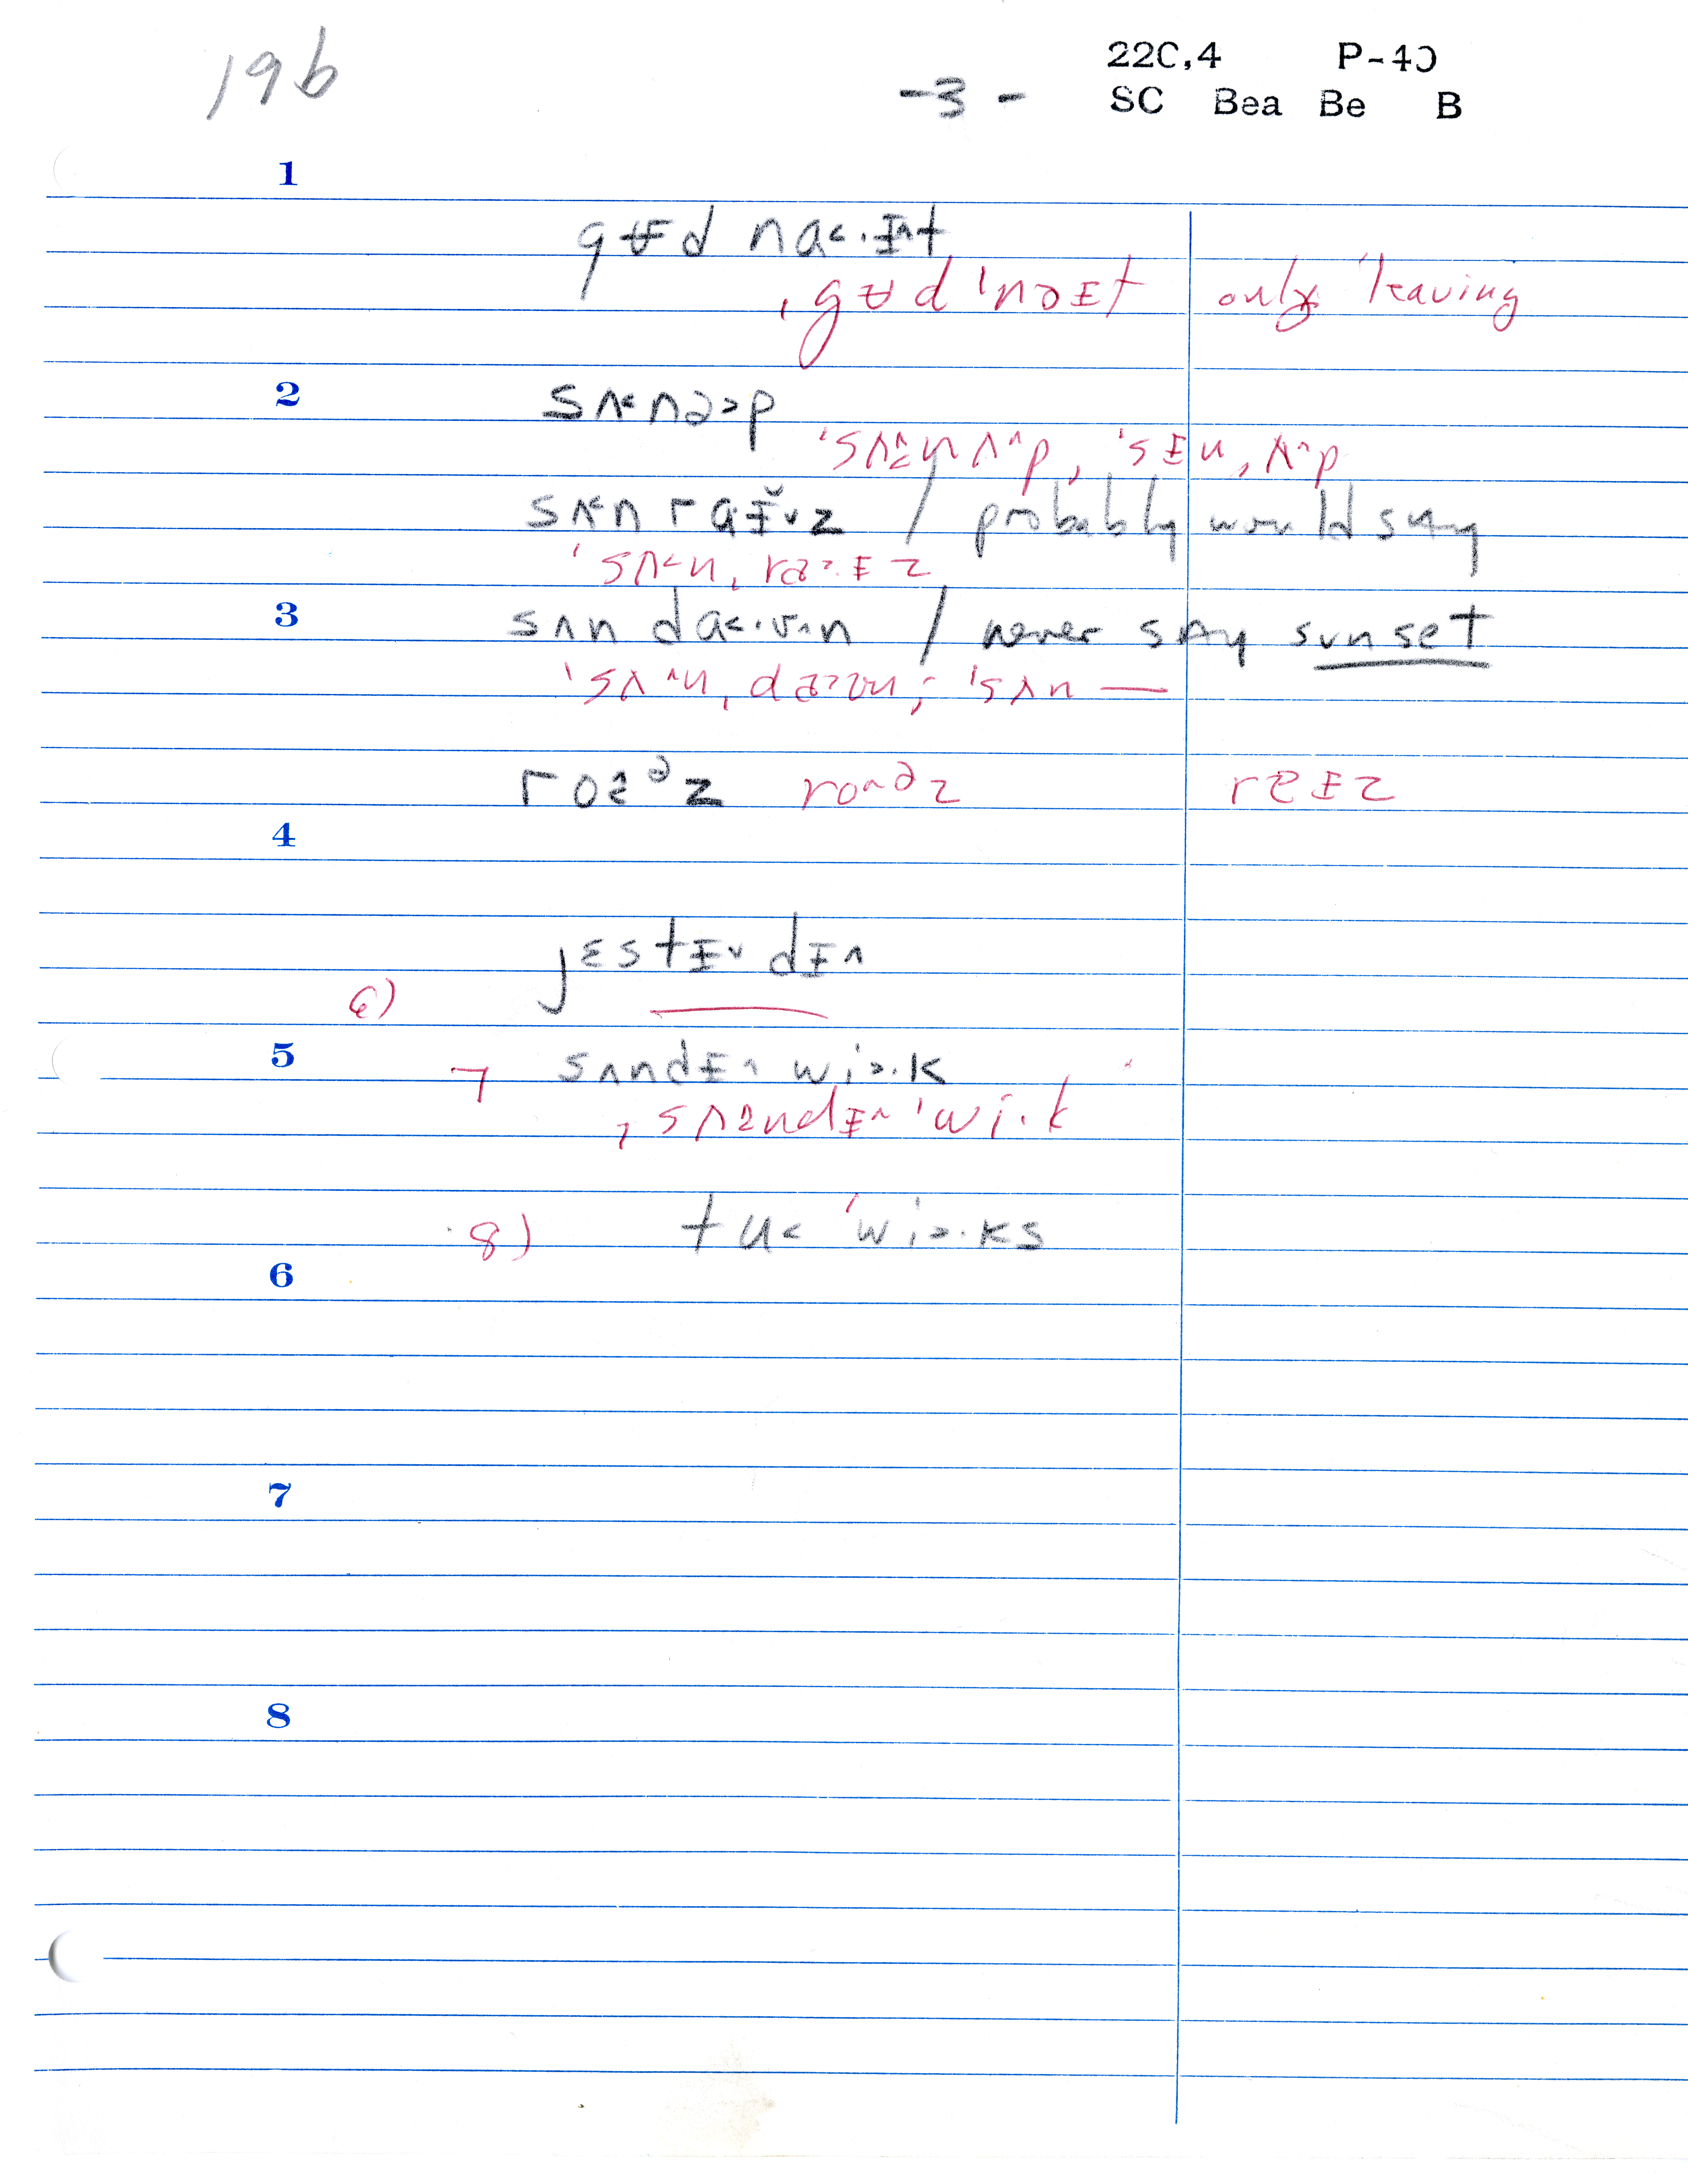 196
22C,4 P-40
-3- SC Bea Be B
1
gᵾd na˂·ɪ^t
ˌgᵾd ˈnɑɪt only leaving
2
sʌ˂nə˃p
ˈsʌnʌ^p, ˈsɪnˌʌ^p
sʌ˂n raɪ˅z / probably would say
ˈsʌ˂nˌra˃·ɪz
3
sʌn da˂·ʊ^n / never say sunset
ˈsʌ^nˌda˃ʊn; ˈsʌn —
ro^ᵊz ro^əz rɐɪz
4
jɛstɪ˅dɪ^
6)
5
7 sʌndɪ^ wi˃·k
ˌsʌndɪ^ ˈwi·k
8) tu˂ ˈwi˃·ks
6
7
8